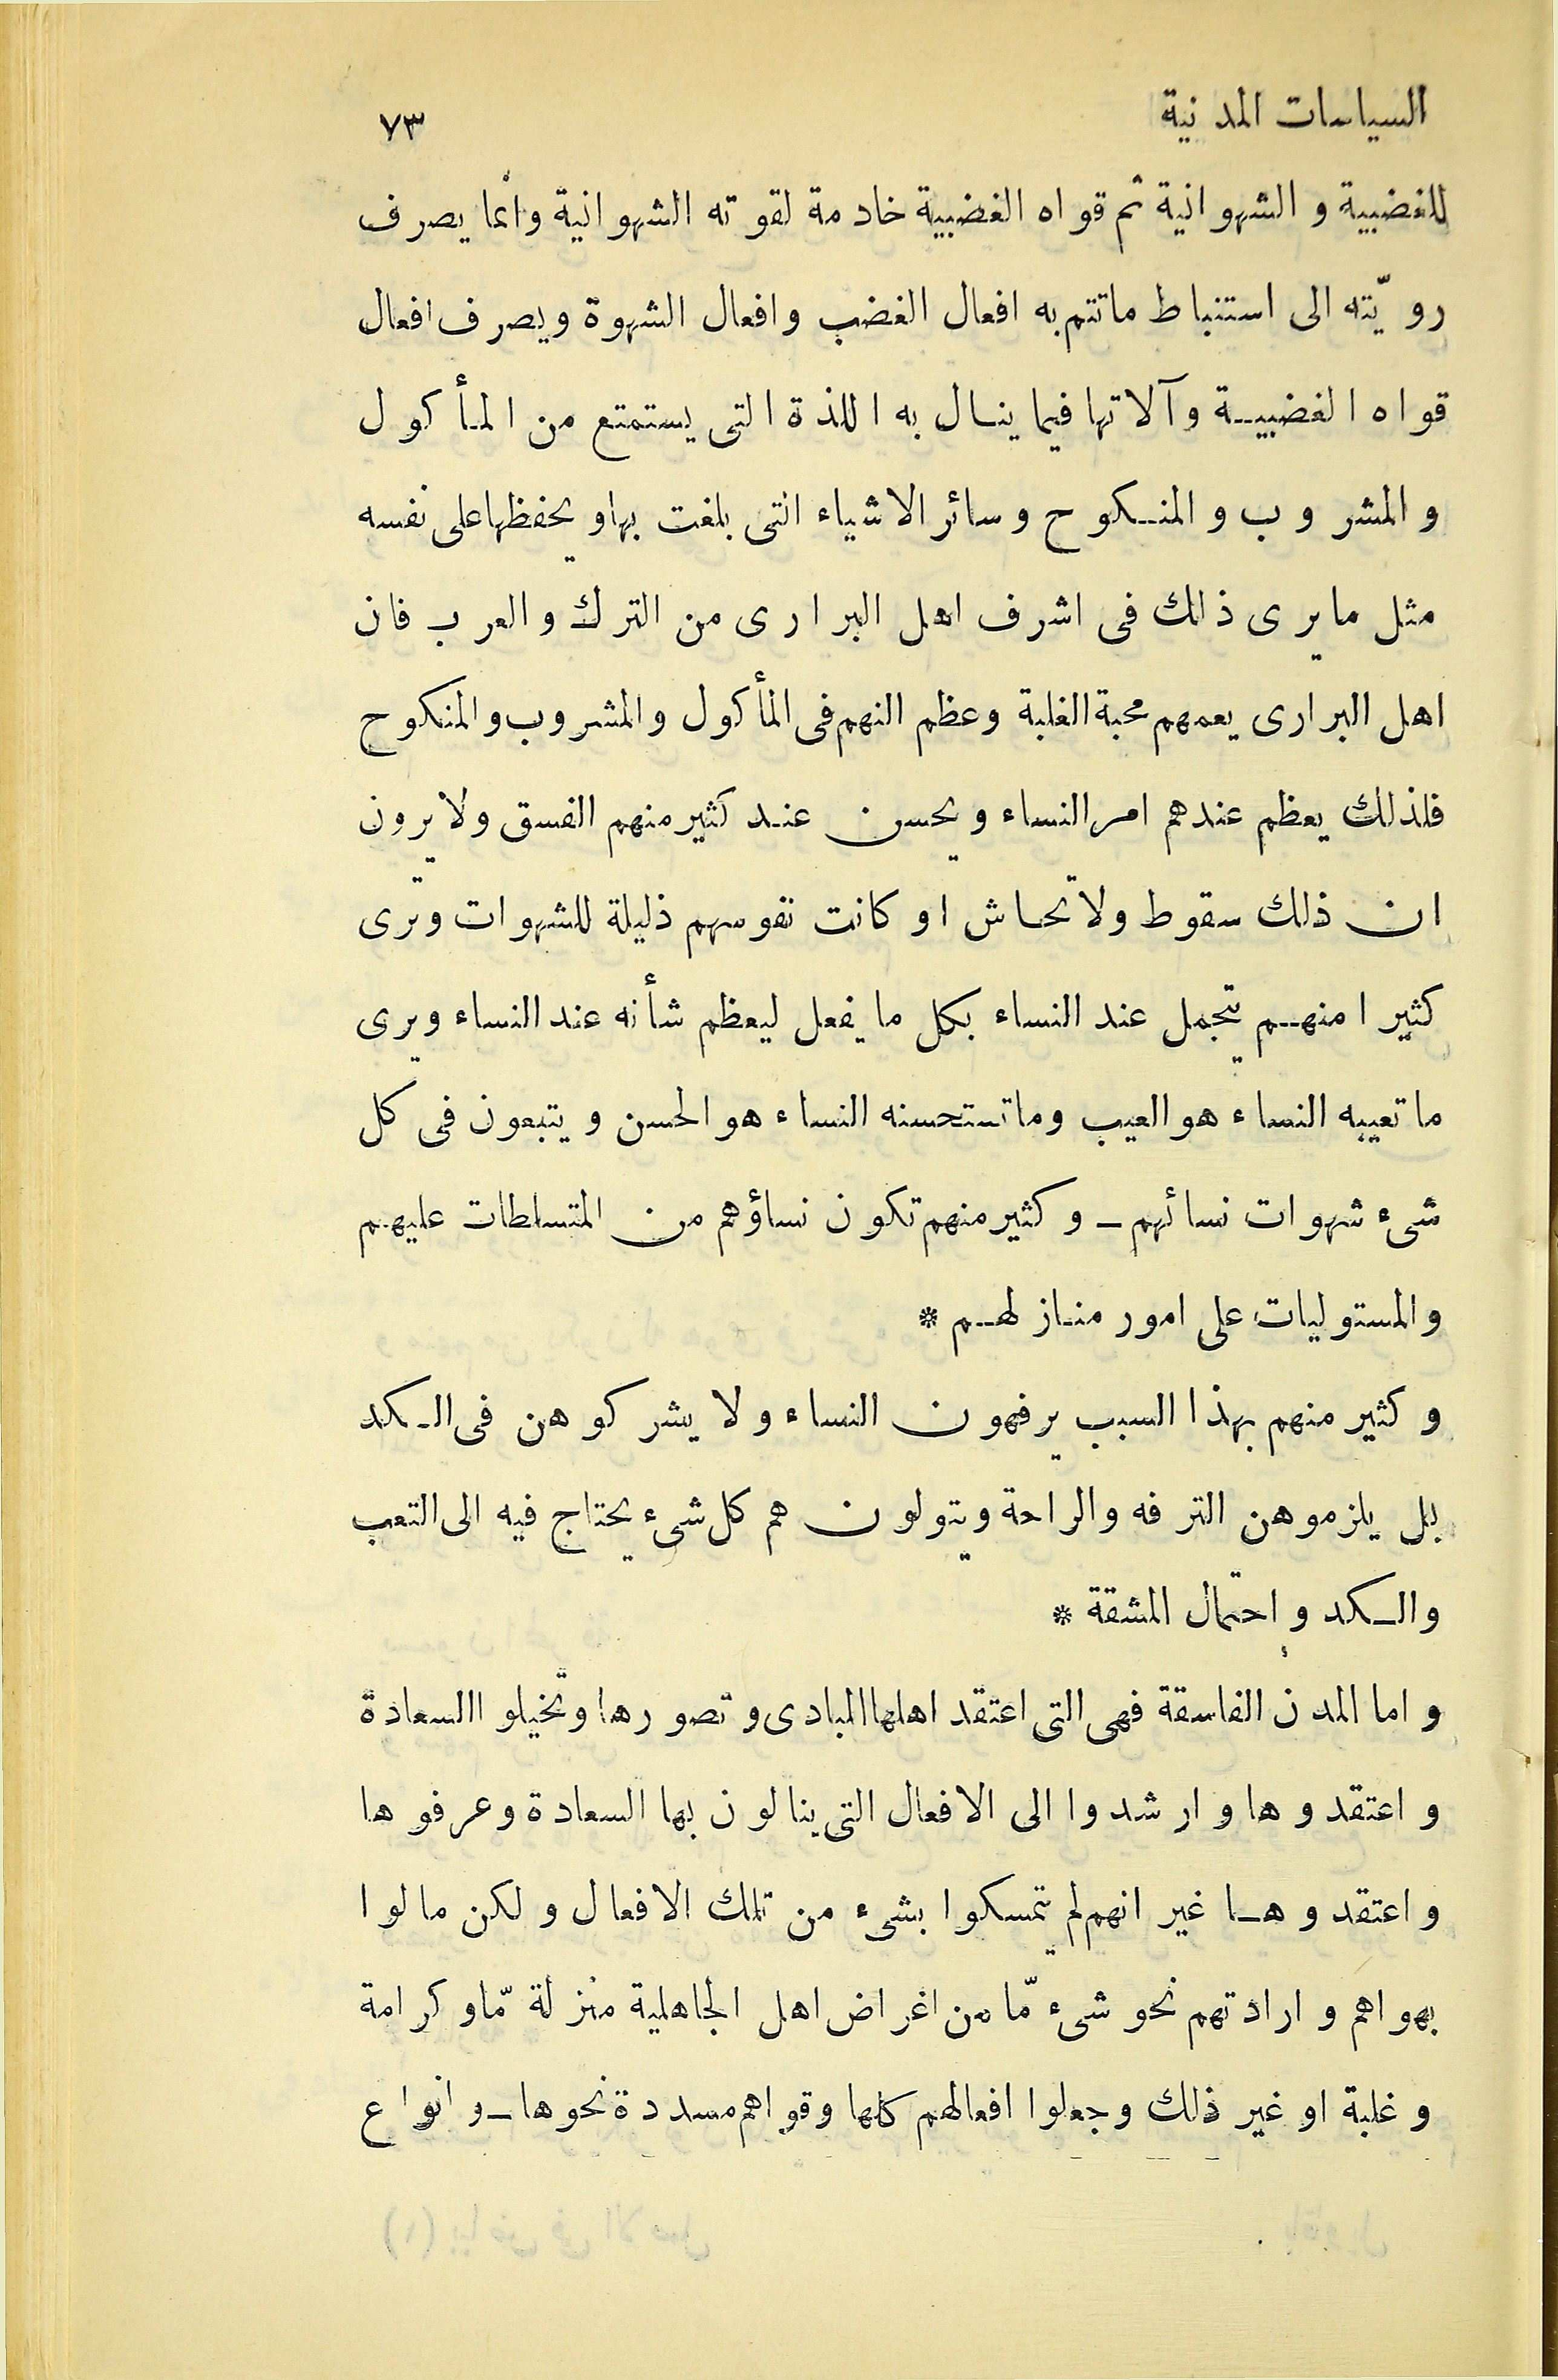 السياسات المدنية ٧٣
للغضبية والشهوانية ثم قواه الغضبية خادمة لقوته الشهوانية وانما يصرف
رويّته الى استنباط ماتتم به افعال الغضب وافعال الشهوة ويصرف افعال
قواه الغضبيـة وآلاتها فيما ينـال به اللذة التى يستمتع من المأكول
والمشروب والمنـكوح وسائر الاشياء التى بلغت بها ويحفظها على نفسه
مثل ما يرى ذلك فى اشرف اهل البرارى من الترك والعرب فان
اهل البرارى يعمهم محبة الغلبة وعظم النهم فى المأكول والمشروب والمنكوح
فلذلك يعظم عندهم امر النساء ويحسن عنـد كثير منهم الفسق ولا يرون
ان ذلك سقوط ولا تحاش او كانت نفوسهم ذليلة للشهوات وترى
كثيرا منهـم يتجمل عند النساء بكل ما يفعل ليعظم شأنه عند النساء ويرى
ما تعيبه النساء هو العيب وما تستحسنه النساء هو الحسن ويتبعون فى كل
شىء شهوات نسائهم ـ وكثير منهم تكون نساؤهم من المتسلطات عليهم
والمستوليات على امور منـازلهـم *
وكثير منهم بهذا السبب يرفهون النساء ولا يشركوهن فى الـكد
بل يلزموهن الترفه والراحة ويتولون هم كل شىء يحتاج فيه الى التعب
والـكد واحتمال المشقة *
واما المدن الفاسقة فهى التى اعتقد اهلها المبادى وتصورها وتخيلو االسعادة
واعتقدوها وارشدوا الى الافعال التى ينالون بها السعادة وعرفوها
واعتقدوهـا غير انهم لم يتمسكوا بشىء من تلك الافعال ولكن مالوا
بهواهم وارادتهم نحو شىء مّا من اغراض اهل الجاهلية منزلة مّا وكرامة
وغلبة او غير ذلك وجعلوا افعالهم كلها وقواهم مسددة نحوها ـ وانواع